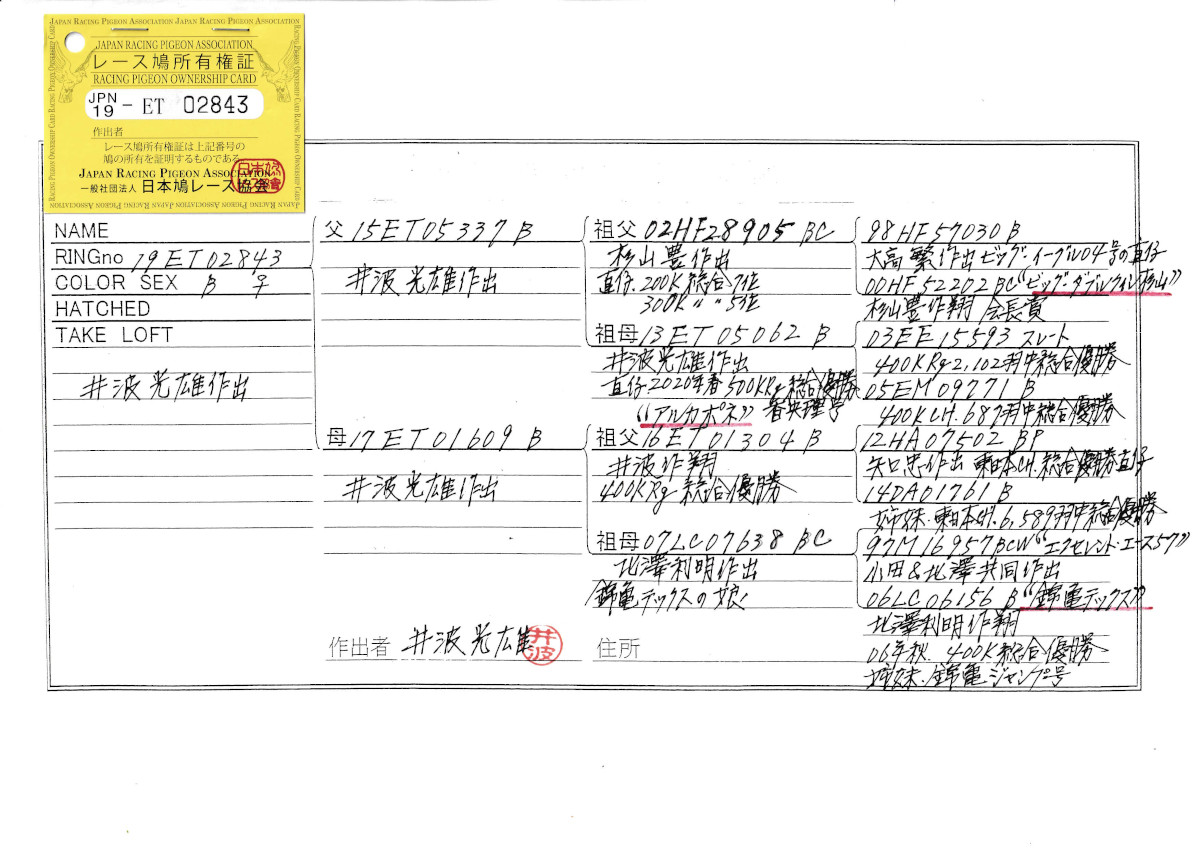 JAPAN RACING PIGEON ASSOCIATION JAPAN RACING PIGEON ASSOCIATION
JAPAN RACING PIGEON ASSOCIATION
レース鳩所有権証
RACING PIGEON OWNERSHIP CARD
JPN
19 - ET 02843
作出者
レース鳩所有権証は上記番号の
鳩の所有を証明するものである
JAPAN RACING PIGEON ASSOCIATION
一般社団法人 日本鳩レース協会
NAME
RINGno 19ET02843
COLOR SEX B ♀
HATCHED
TAKE LOFT
井波光雄作出
父 15ET05337 B
井波光雄作出
母 17ET01609 B
井波光雄作出
作出者 井波光雄 井波
祖父 02HF28905 BC
杉山豊作出
直仔.200K総合7位
300K 〃 〃 5位
祖母 13ET05062 B
井波光雄作出
直仔.2020年春500KRg総合優勝
“アルカポネ”
祖父 16ET01304 B
井波作翔
400KRg 総合優勝
祖母 07LC07638 BC
北澤利明作出
錦竜テックスの娘
住所
98HF57030 B
大高繁作出ビッグ・イーグル04号の直仔
00HF52202 BC“ビッグ・ダブルウィン杉山”
杉山豊作翔 会長賞
03EE15593 スレート
400KRg2,102羽中総合優勝
05EM09771 B
400KCH.687羽中総合優勝
12HA07502 BP
矢口忠作出 東日本CH.総合優勝直仔
14DA01761 B
姉妹.東日本CH.6,589羽中総合優勝
97M16957BCW“エクセレント・エース57”
小田&北澤共同作出
06LC06156 B “錦竜テックス”
北澤利明作翔
06年秋.400K総合優勝
姉妹.錦竜ジャンプ号